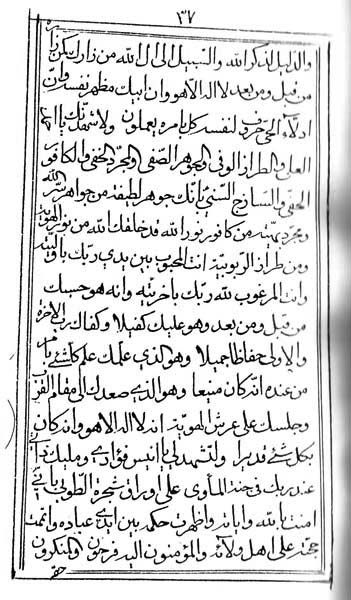 ٣٧
والدليل لذكر الله والسبيل الى ال الله من زارك يكن زار
من قبل ومن بعد لا اله الا هو وان ابيك مظهر نفسه وان
ادلاء الحي حروف لنفسه كل بامره يعملون ولاشهدنك باانها
العلى والطراز الوفى والجوهر الصفى والمجرد الخفى والكافور
الحفى والساذج السنى بانك جوهر لطيفة من جواهر سر الله
ومجرد من كافور نور الله قد خلقك الله من نور الهوية
ومن طراز الربوبية انت المحبوب بين يدي ربك بالله
وانت المرغوب لله ربك باخريته وانه هو حسبك
من قبل ومن بعد وهو عليك كفيلا وكفاك رب الاخرة
والاولى حفاظا جميلا وهو الذي علمك علم كل شئ بامر
من عنده انه كان منيعا وهو الذي صعدك الى مقام القرب
وجلسك على عرش الهوية انه لا اله الا هو وانه كان
بكل شئ قديرا ولتشهد لي يا انيس فؤادي ومليك
عند ربك في جنة المأوى على اوراق شجرة الطوبى باني
امنت بالله واياته واظهرت حكمه بين ايدي عباده واتممت
حجته على اهل ولائه والمؤمنون اليه فرحون والمنكرون